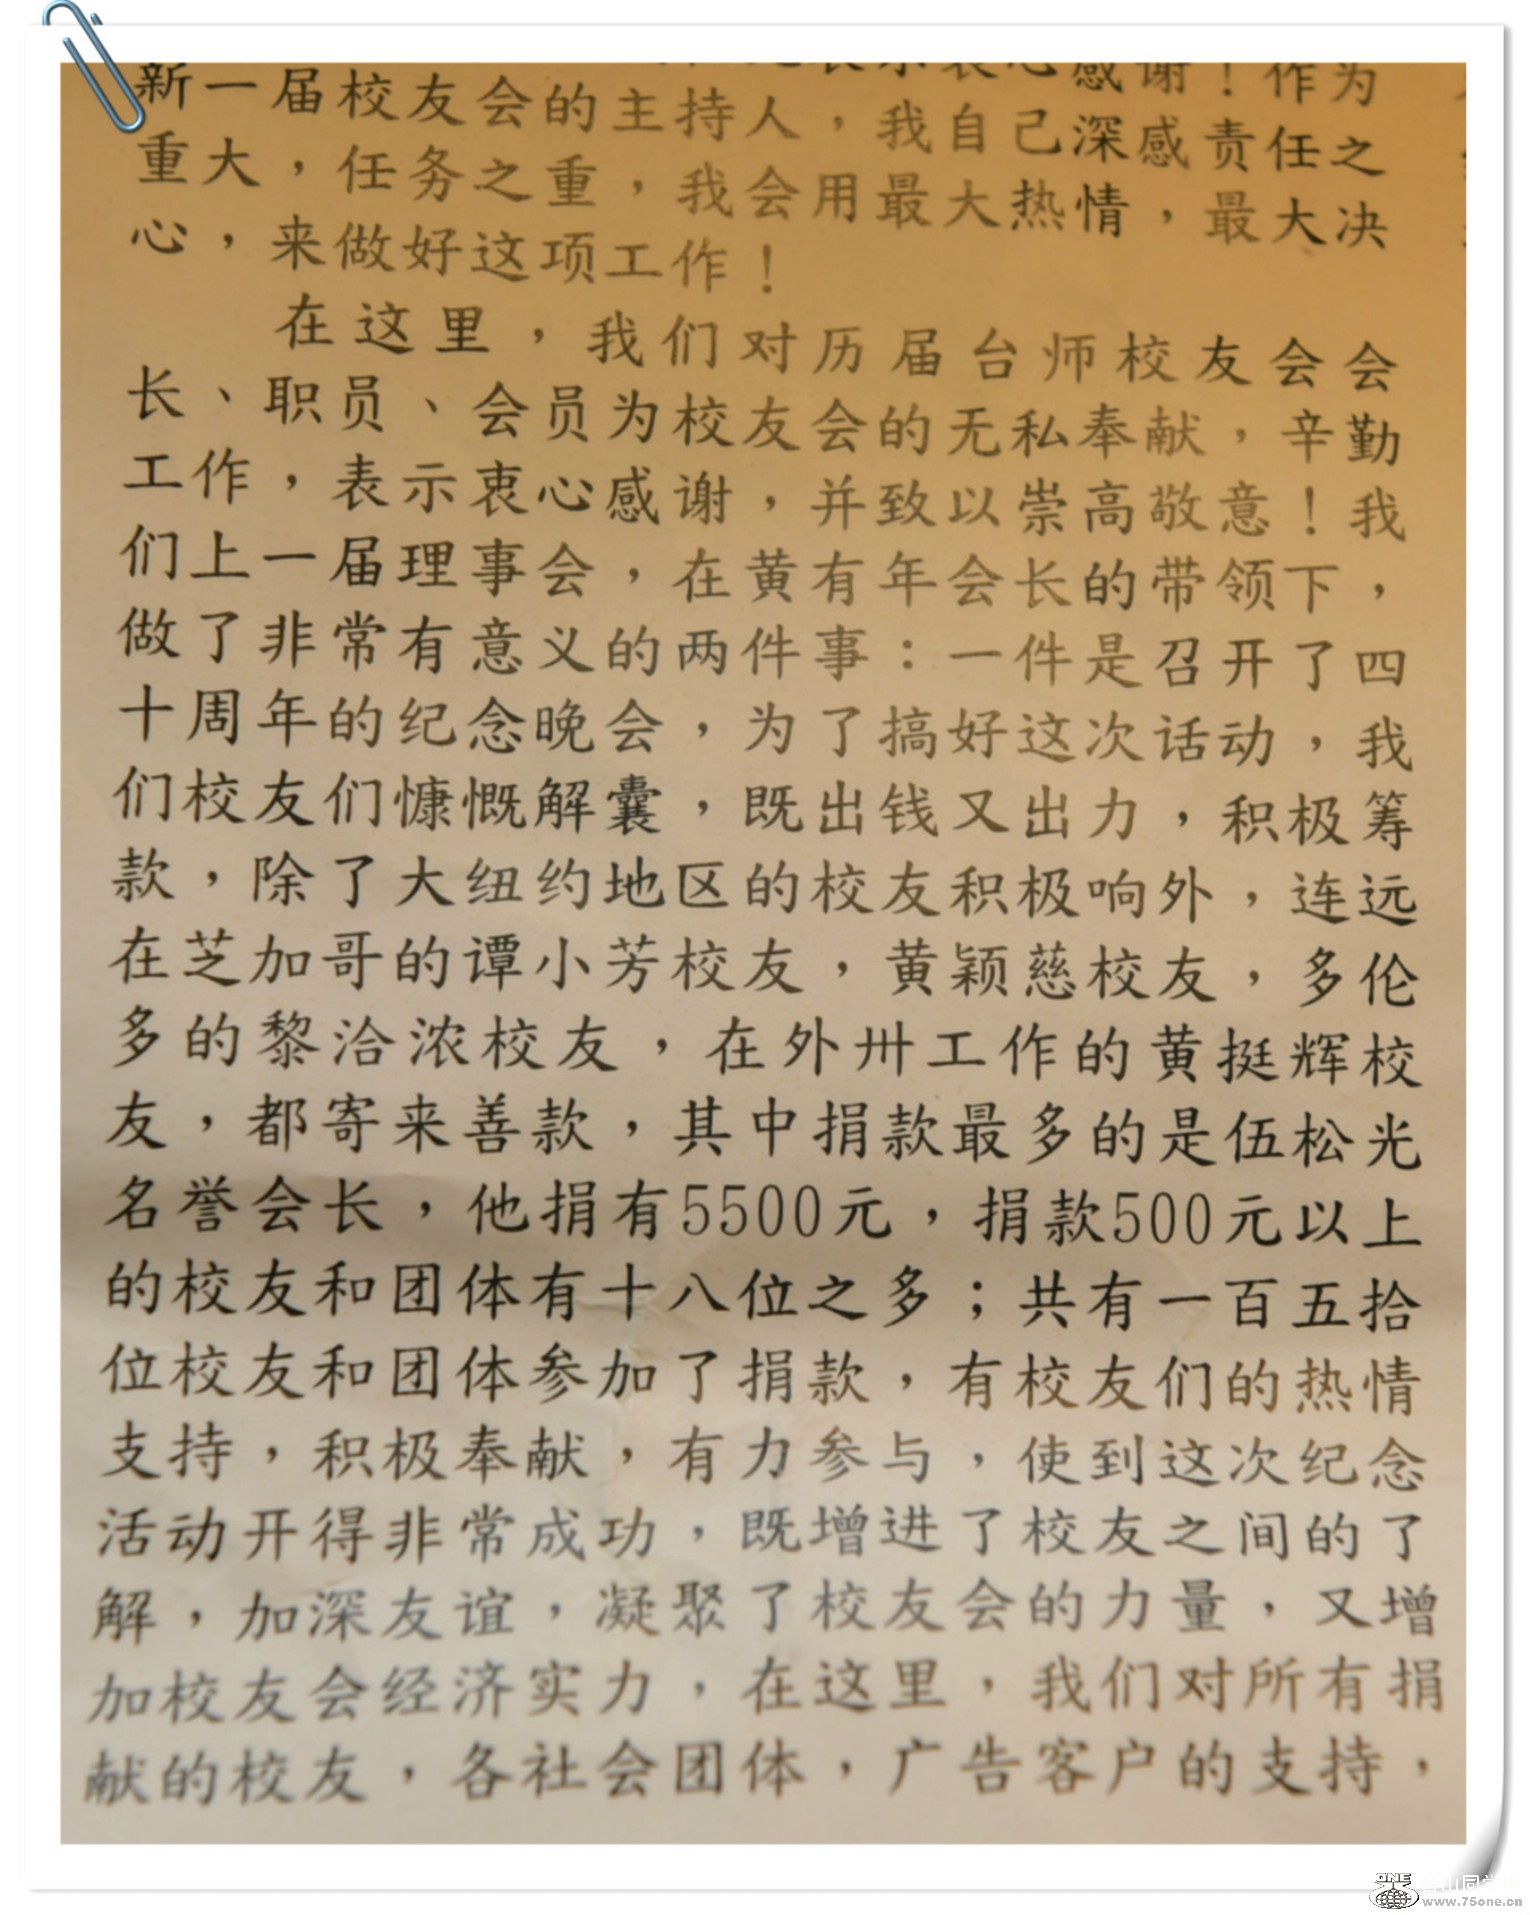 表示衷心感谢！作为
新一届校友会的主持人，我自己深感责任之
重大，任务之重，我会用最大热情，最大决
心，来做好这项工作！
在这里，我们对历届台师校友会会
长、职员、会员为校友会的无私奉献，辛勤
工作，表示衷心感谢，并致以崇高敬意！我
们上一届理事会，在黄有年会长的带领下，
做了非常有意义的两件事：一件是召开了四
十周年的纪念晚会，为了搞好这次话动，我
们校友们慷慨解囊，既出钱又出力，积极筹
款，除了大纽约地区的校友积极响外，连远
在芝加哥的谭小芳校友，黄颖慈校友，多伦
多的黎洽浓校友，在外卅工作的黄挺辉校
友，都寄来善款，其中捐款最多的是伍松光
名誉会长，他捐有5500元，捐款500元以上
的校友和团体有十八位之多；共有一百五拾
位校友和团体参加了捐款，有校友们的热情
支持，积极奉献，有力参与，使到这次纪念
活动开得非常成功，既增进了校友之间的了
解，加深友谊，凝聚了校友会的力量，又增
加校友会经济实力，在这里，我们对所有捐
献的校友，各社会团体，广告客户的支持，
ONE
www.75one.cn